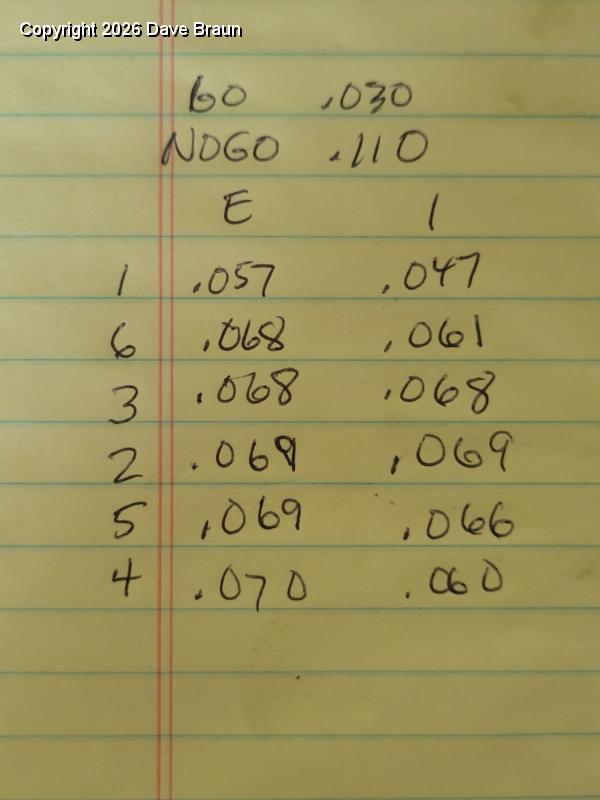 Copyright 2026 Dave Braun
GO .030
NOGO .110
E I
1 .057 .047
6 .068 .061
3 .068 .068
2 .069 .069
5 .069 .066
4 .070 .060